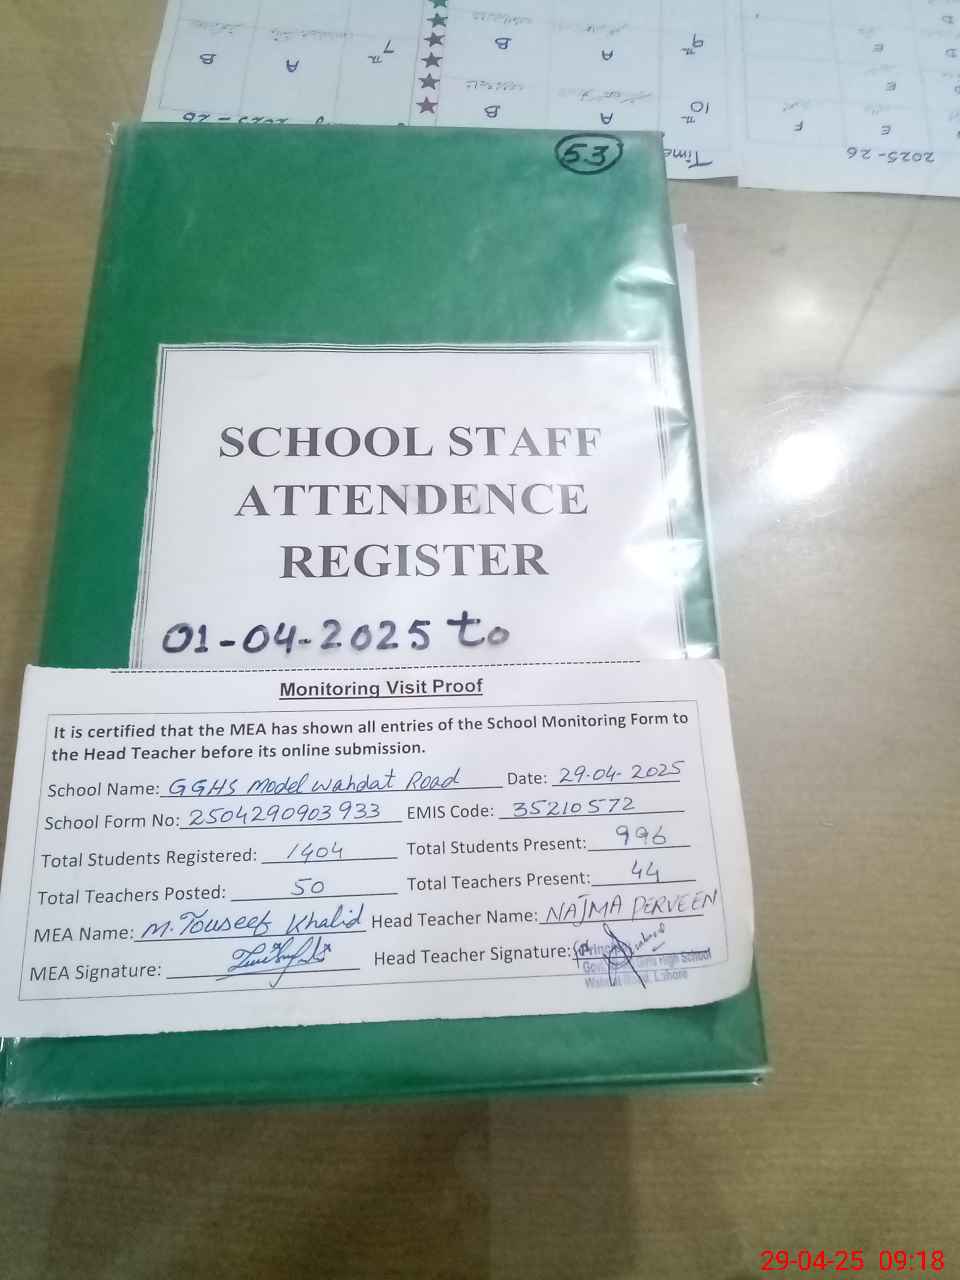 7th
A
B
9th
A
B
10th
A
B
E
E
E
F
2025-26
Time
53
SCHOOL STAFF
ATTENDENCE
REGISTER
01-04-2025 to
Monitoring Visit Proof
It is certified that the MEA has shown all entries of the School Monitoring Form to
the Head Teacher before its online submission.
School Name: GGHS Model Wahdat Road Date: 29-04-2025
School Form No: 2504290903933 EMIS Code: 35210572
Total Students Registered: 1404 Total Students Present: 996
Total Teachers Posted: 50 Total Teachers Present: 44
MEA Name: M. Touseef Khalid Head Teacher Name: NAJMA PERVEEN
MEA Signature: Head Teacher Signature:
Principal
Girls High School
Road, Lahore
29-04-25 09:18